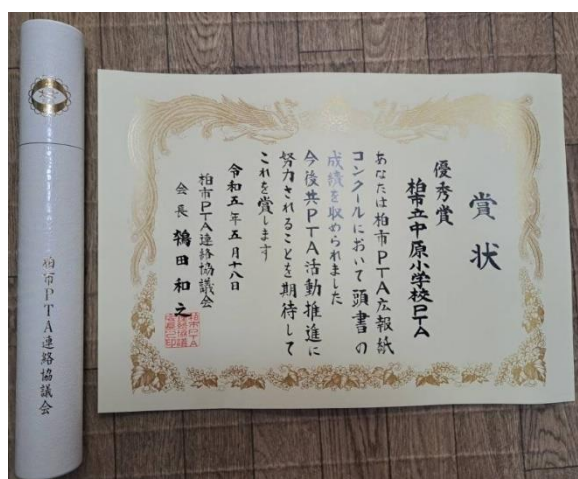 賞状
優秀賞
柏市立中原小学校PTA
あなたは柏市PTA広報紙
コンクールにおいて頭書の
成績を収められました
今後共PTA活動推進に
努力されることを期待して
これを賞します
令和五年五月十八日
柏市PTA連絡協議会
会長 鶴田和之
柏市PTA連絡協議会